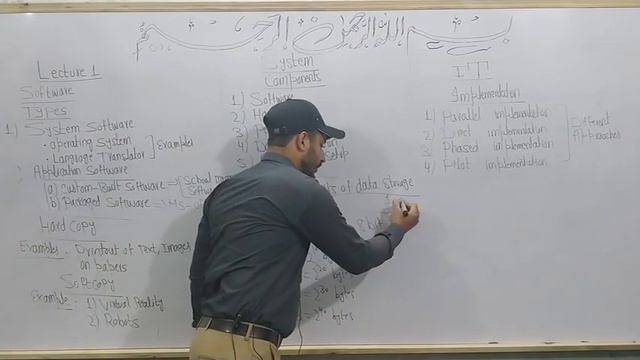 بسم الله الرحمن الرحيم
Lecture 1
Software
Types
1) System Software
• operating System
• Language Translator ] Examples
Application Software
(a) Custom-Built Software ⇒ (School
(b) Packaged Software =
Hard Copy
Examples: Printout of Text, Images
on papers
Softcopy
Example: 1) Virtual Reality
2) Robots
System
Components
1) Software
2)
3)
4)
of data storage
8 bit
= 2³⁰ bytes
= 2⁴⁰ bytes
IT
Implementation
1) Parallel implementation
2) Direct implementation
3) Phased implementation
4) Pilot implementation
Different
Approaches